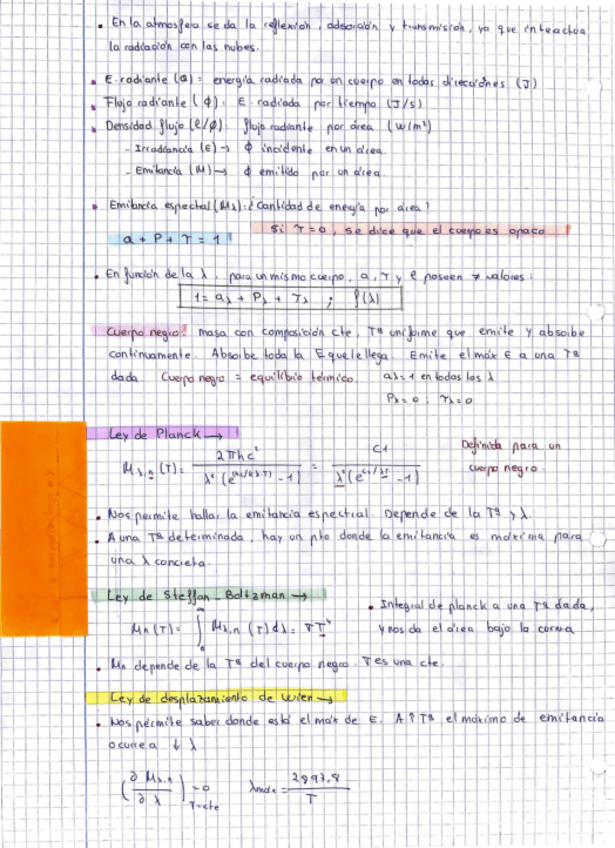 • En la atmosfera se da la reflexión, adsorción y transmisión, ya que interactua
la radiación con las nubes.
• E. radiante (Q): energía radiada por un cuerpo en todas direcciones (J)
• Flujo radiante (ϕ): E radiada por tiempo (J/s)
• Densidad flujo (e/ϕ): flujo radiante por área (w/m²)
- Irradiancia (E) → ϕ incidente en un área.
- Emitancia (M) → ϕ emitido por un área.
• Emitancia espectral (Mλ): ¿Cantidad de energía por área?
a + P + τ = 1 Si τ=0, se dice que el cuerpo es opaco
• En función de la λ, para un mismo cuerpo, a, τ y ρ poseen ≠ valores:
1 = aλ + Pλ + τλ ; f(λ)
Cuerpo negro: masa con composición cte, Tª uniforme que emite y absorbe
continuamente. Absorbe toda la E que le llega. Emite el máx E a una Tª
dada. Cuerpo negro = equilibrio térmico. aλ=1 en todas las λ
Pλ=0 ; τλ=0
Ley de Planck →
Mλ,n (T) = 2πhc² / λ⁵ (e^(hc/kλT) -1) = C1 / λ⁵ (e^(c₂/λT) -1) Definida para un
cuerpo negro.
• Nos permite hallar la emitancia espectral. Depende de la Tª y λ.
• A una Tª determinada, hay un pto donde la emitancia es máxima para
una λ concreta.
Ley de Steffan-Boltzman →
Mn(T) = ∫₀^∞ Mλ,n (T) dλ = σT⁴ • Integral de planck a una Tª dada,
y nos da el área bajo la curva
• Mn depende de la Tª del cuerpo negro. σ es una cte.
Ley de desplazamiento de Wien →
• Nos permite saber donde está el máx de E. A ↑ Tª el máximo de emitancia
ocurre a ↓ λ
(∂Mλ,n / ∂λ) T=cte = 0 λmáx = 2893,8 / T